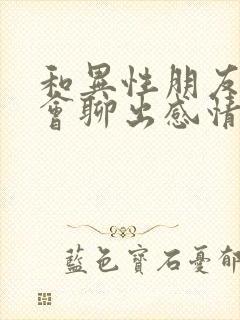 和異性朋友
會聊出感情
藍色寶石憂郁